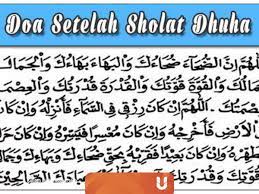 Doa Setelah Sholat Dhuha
اَللّٰهُمَّ اِنَّ الضُّحَآءَ ضُحَاءُكَ وَالْبَهَاءَ بَهَاءُكَ وَالْجَمَالَ
جَمَالُكَ وَالْقُوَّةَ قُوَّتُكَ وَالْقُدْرَةَ قُدْرَتُكَ وَالْعِصْمَةَ
عِصْمَتُكَ. اَللّٰهُمَّ اِنْ كَانَ رِزْقِى فِى السَّمَآءِ فَأَنْزِلْهُ وَاِنْ كَانَ
الْاَرْضِ فَأَخْرِجْهُ وَاِنْ كَانَ مُعَسَّرًا فَيَسِّرْهُ وَاِنْ كَانَ
فَطَهِّرْهُ وَاِنْ كَانَ بَعِيْدًا فَقَرِّبْهُ بِحَقِّ ضُحَاءِكَ وَبَهَاءِكَ وَجَمَالِكَ